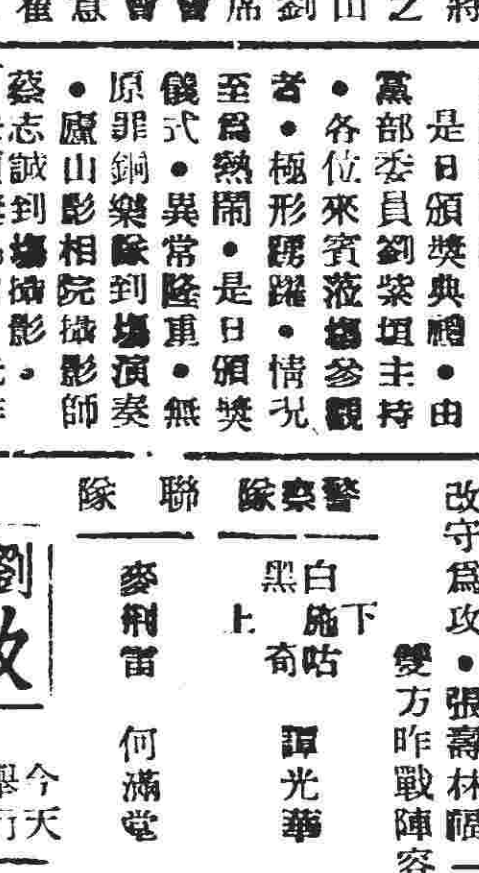 是日頒獎典禮●由
黨部委員劉紫垣主持
●各位來賓蒞塲參觀
者●極形踴躍●情況
至爲熱鬧●是日頒獎
儀式●異常隆重●無
原罪銅樂隊到塲演奏
●廬山影相院攝影師
蔡志誠到塲攝影●
改守爲攻●張壽林
雙方昨戰陣容
警察隊
白施咕
下
黑
上
荀
譚光華
聯隊
麥荆雷
何滿堂
劉
今天